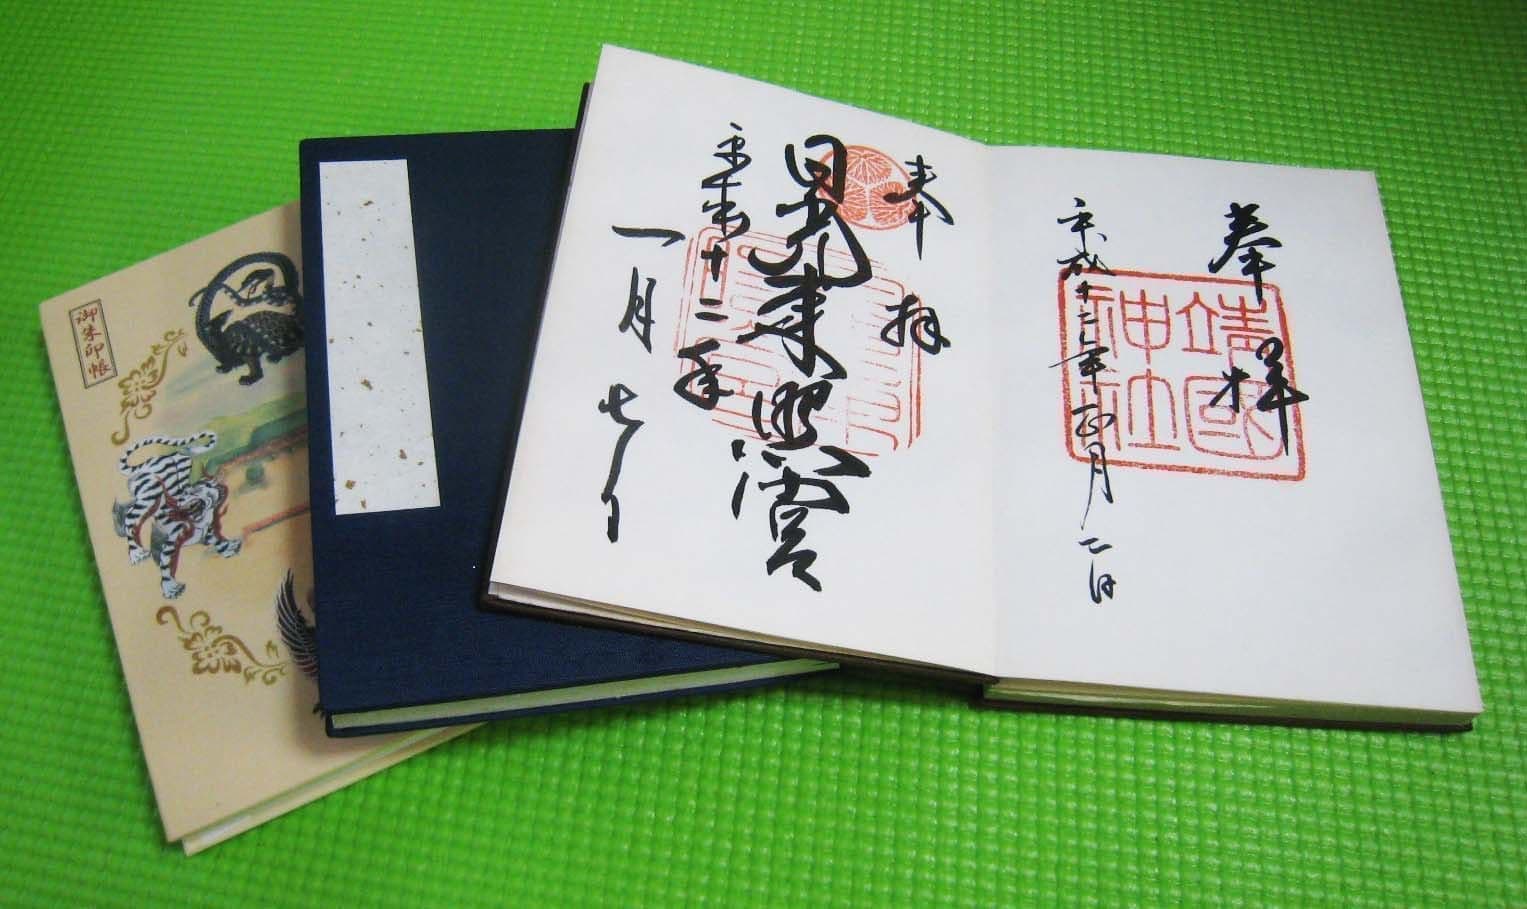 奉拝
靖國
神社
平成十二年正月二日
奉拝
日光東照宮
平成十二年
一月七日
御朱印帳